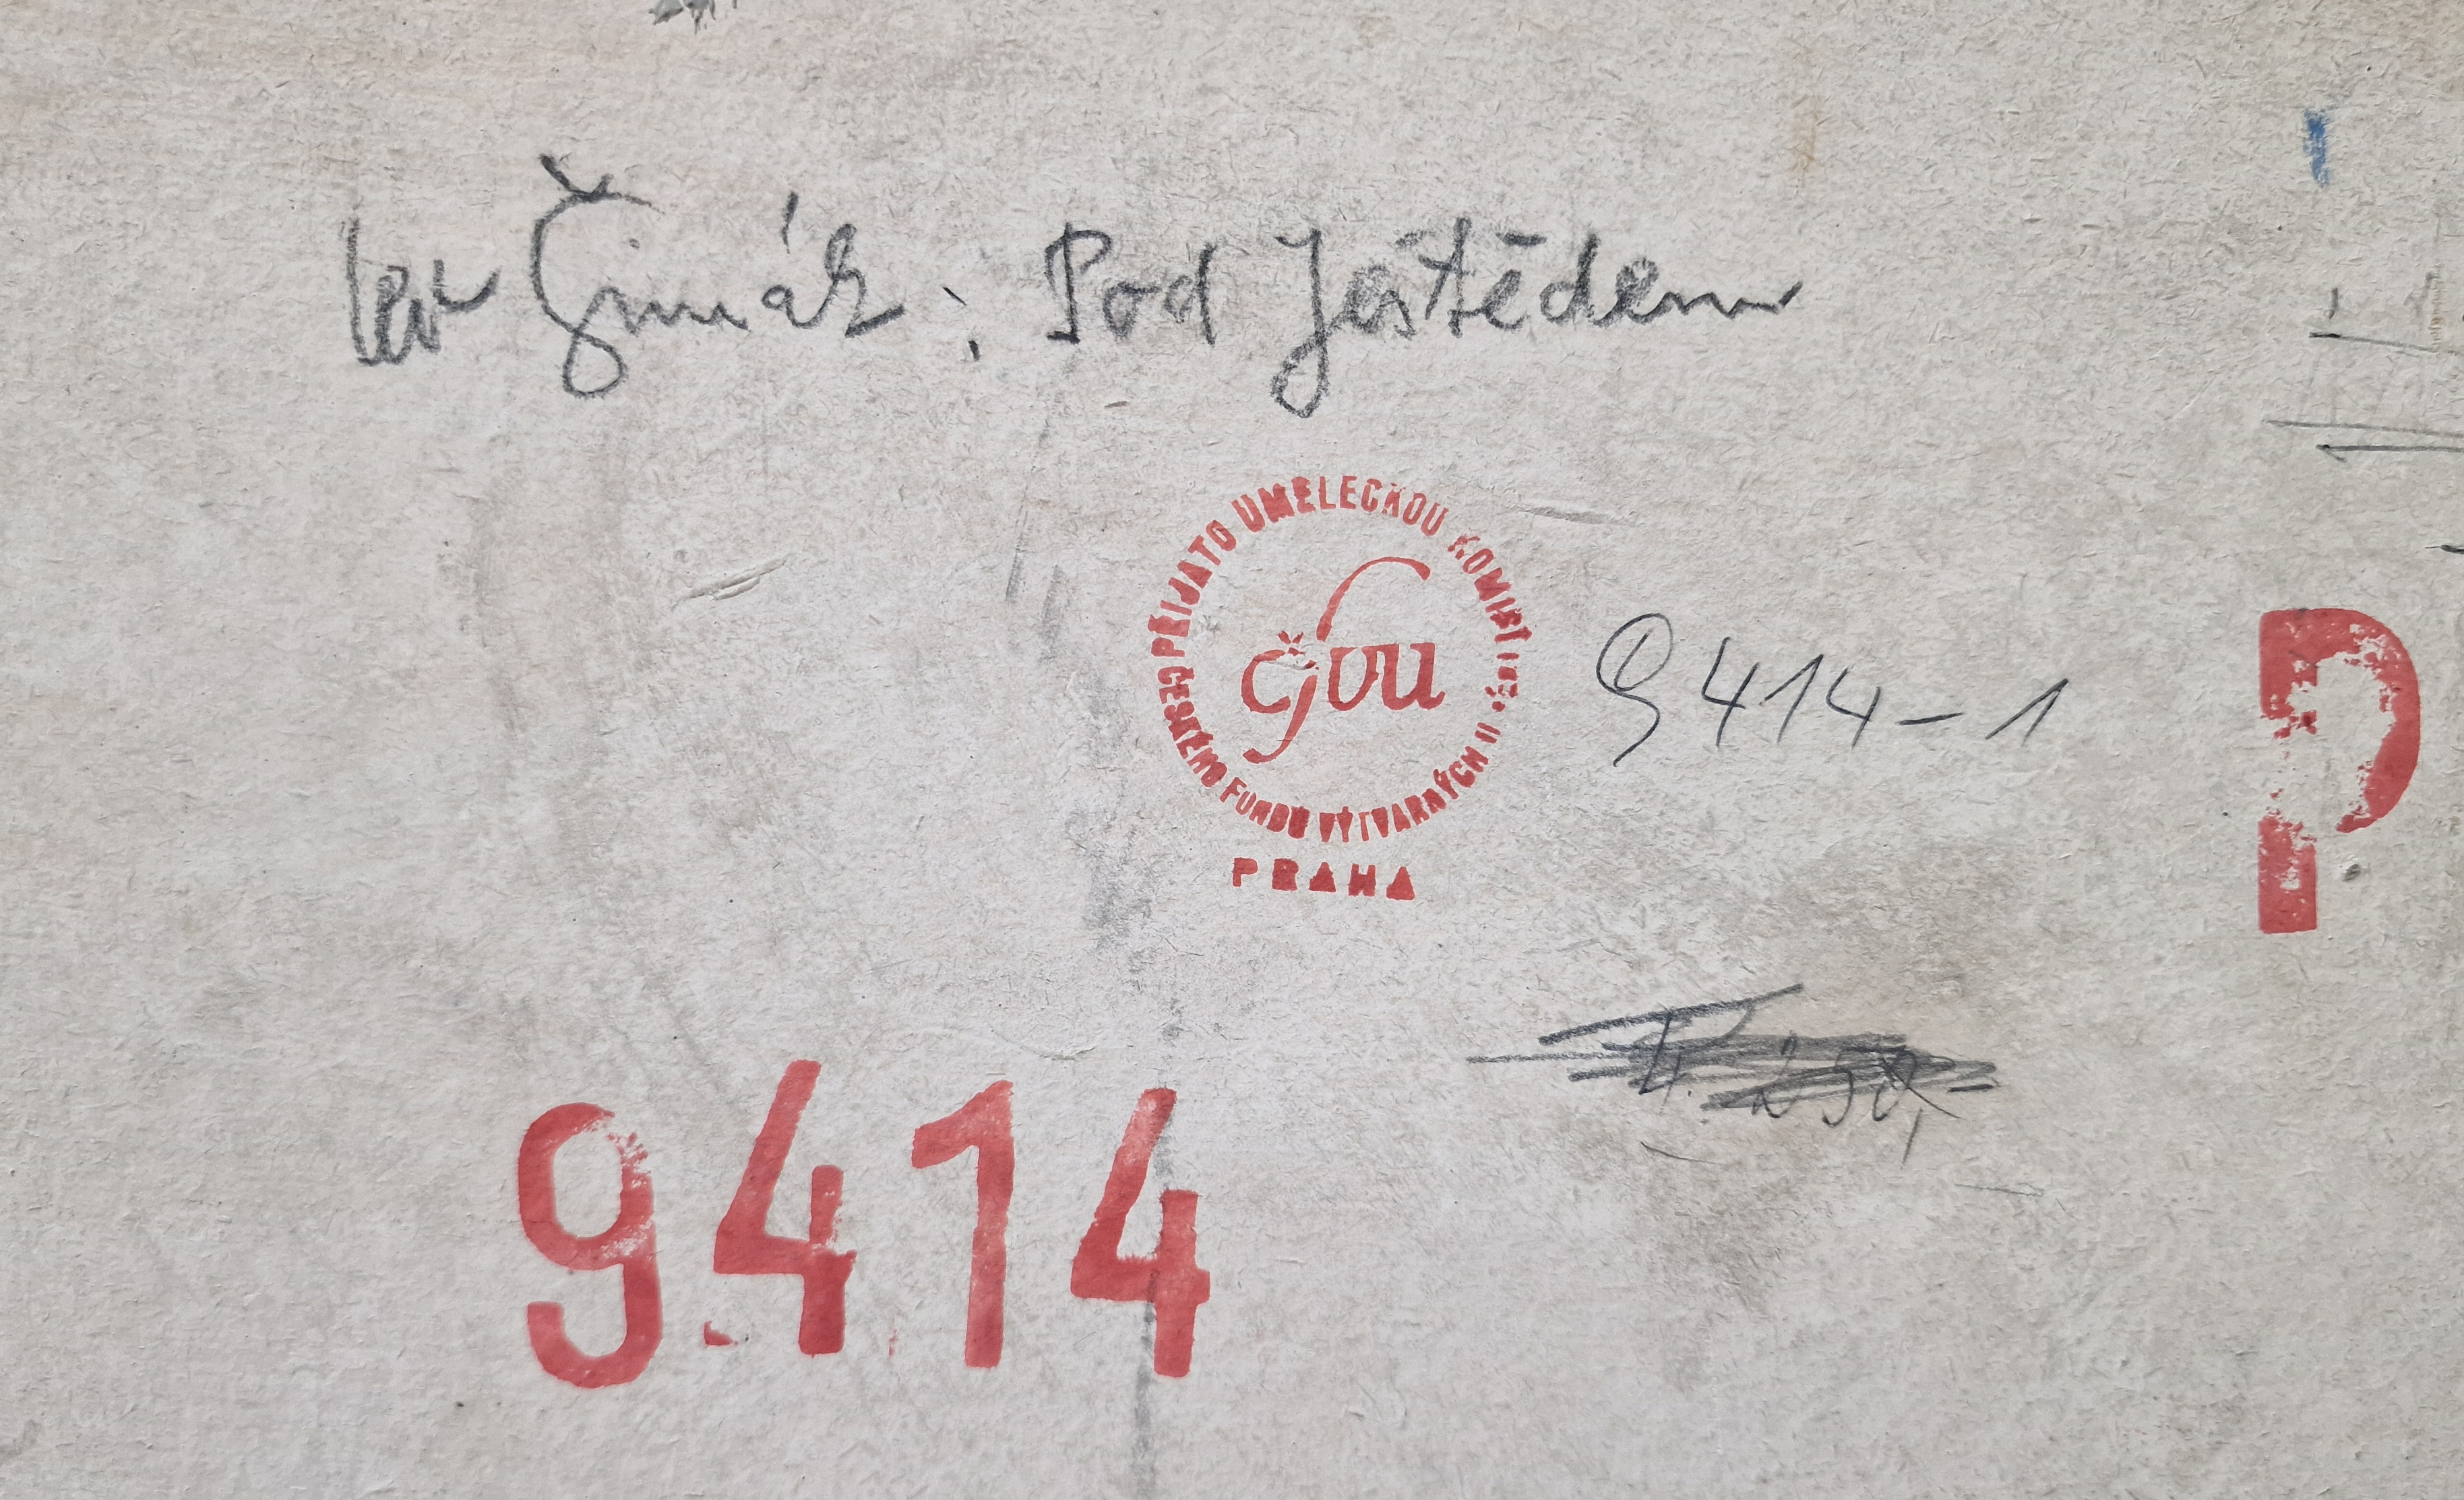 Lev Šimák: Pod Ještědem
PŘIJATO UMĚLECKOU KOMISÍ
ČESKÉHO FUNDU VÝTVARNÝCH
čfvu
PRAHA
9414-1
P
9414